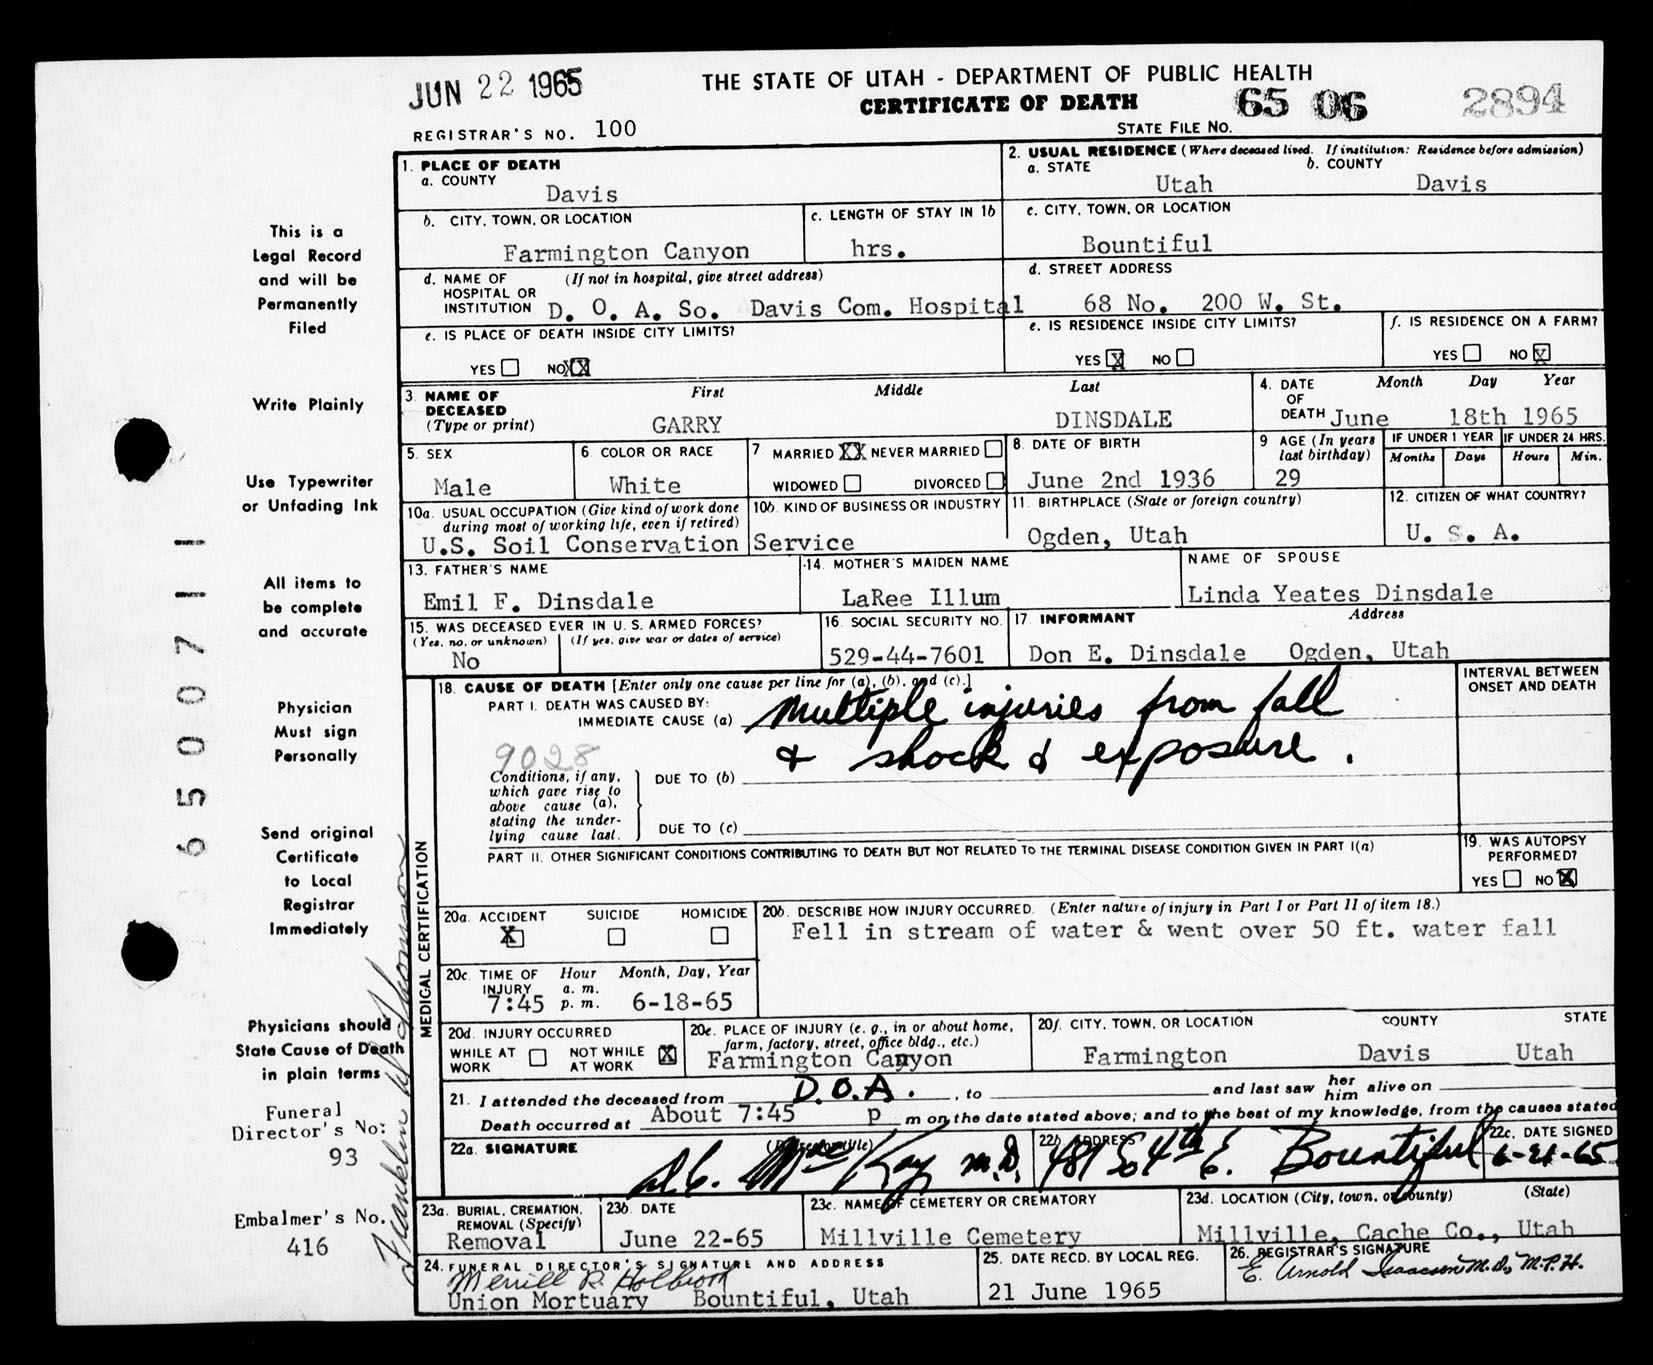 JUN 22 1965
THE STATE OF UTAH - DEPARTMENT OF PUBLIC HEALTH
CERTIFICATE OF DEATH
65 06 2894
REGISTRAR'S NO. 100
STATE FILE NO.
1. PLACE OF DEATH
a. COUNTY
Davis
2. USUAL RESIDENCE (Where deceased lived. If institution: Residence before admission)
a. STATE b. COUNTY
Utah Davis
b. CITY, TOWN, OR LOCATION
Farmington Canyon
c. LENGTH OF STAY IN 1b
hrs.
c. CITY, TOWN, OR LOCATION
Bountiful
d. NAME OF HOSPITAL OR INSTITUTION (If not in hospital, give street address)
D. O. A. So. Davis Com. Hospital
d. STREET ADDRESS
68 No. 200 W. St.
e. IS PLACE OF DEATH INSIDE CITY LIMITS?
YES NO XX
e. IS RESIDENCE INSIDE CITY LIMITS?
YES X NO
f. IS RESIDENCE ON A FARM?
YES NO X
3. NAME OF DECEASED (Type or print)
First Middle Last
GARRY DINSDALE
4. DATE OF DEATH Month Day Year
June 18th 1965
5. SEX
Male
6. COLOR OR RACE
White
7 MARRIED XX NEVER MARRIED
WIDOWED DIVORCED
8. DATE OF BIRTH
June 2nd 1936
9 AGE (In years last birthday)
29
IF UNDER 1 YEAR
Months Days
IF UNDER 24 HRS.
Hours Min.
10a. USUAL OCCUPATION (Give kind of work done during most of working life, even if retired)
10b. KIND OF BUSINESS OR INDUSTRY
U.S. Soil Conservation Service
11. BIRTHPLACE (State or foreign country)
Ogden, Utah
12. CITIZEN OF WHAT COUNTRY?
U. S. A.
13. FATHER'S NAME
Emil F. Dinsdale
14. MOTHER'S MAIDEN NAME
LaRee Illum
NAME OF SPOUSE
Linda Yeates Dinsdale
15. WAS DECEASED EVER IN U. S. ARMED FORCES?
(Yes, no, or unknown) (If yes, give war or dates of service)
No
16. SOCIAL SECURITY NO.
529-44-7601
17. INFORMANT Address
Don E. Dinsdale Ogden, Utah
MEDICAL CERTIFICATION
18. CAUSE OF DEATH [Enter only one cause per line for (a), (b), and (c).]
INTERVAL BETWEEN ONSET AND DEATH
PART I. DEATH WAS CAUSED BY:
IMMEDIATE CAUSE (a) Multiple injuries from fall
& shock & exposure.
9028
Conditions, if any, which gave rise to above cause (a), stating the underlying cause last.
DUE TO (b)
DUE TO (c)
PART II. OTHER SIGNIFICANT CONDITIONS CONTRIBUTING TO DEATH BUT NOT RELATED TO THE TERMINAL DISEASE CONDITION GIVEN IN PART I(a)
19. WAS AUTOPSY PERFORMED?
YES NO X
20a. ACCIDENT SUICIDE HOMICIDE
X
20b. DESCRIBE HOW INJURY OCCURRED. (Enter nature of injury in Part I or Part II of item 18.)
Fell in stream of water & went over 50 ft. water fall
20c. TIME OF INJURY Hour a. m. p. m. Month, Day, Year
7:45 6-18-65
20d. INJURY OCCURRED
WHILE AT WORK NOT WHILE AT WORK X
20e. PLACE OF INJURY (e. g., in or about home, farm, factory, street, office bldg., etc.)
Farmington Canyon
20f. CITY, TOWN, OR LOCATION COUNTY STATE
Farmington Davis Utah
21. I attended the deceased from D.O.A. , to and last saw her him alive on
Death occurred at About 7:45 p m on the date stated above; and to the best of my knowledge, from the causes stated
22a. SIGNATURE (Degree or title)
Mac Kay M.D.
22b. ADDRESS
481 So 4th E. Bountiful
22c. DATE SIGNED
6-21-65
23a. BURIAL, CREMATION, REMOVAL (Specify)
Removal
23b. DATE
June 22-65
23c. NAME OF CEMETERY OR CREMATORY
Millville Cemetery
23d. LOCATION (City, town, or county) (State)
Millville, Cache Co., Utah
24. FUNERAL DIRECTOR'S SIGNATURE AND ADDRESS
Merrill R. Holbrook
Union Mortuary Bountiful, Utah
25. DATE RECD. BY LOCAL REG.
21 June 1965
26. REGISTRAR'S SIGNATURE
E. Arnold Isaacson M.D., M.P.H.
This is a
Legal Record
and will be
Permanently
Filed
Write Plainly
Use Typewriter
or Unfading Ink
All items to
be complete
and accurate
Physician
Must sign
Personally
Send original
Certificate
to Local
Registrar
Immediately
Physicians should
State Cause of Death
in plain terms
Funeral
Director's No:
93
Embalmer's No.
416
Franklin W Thomson
650071 1